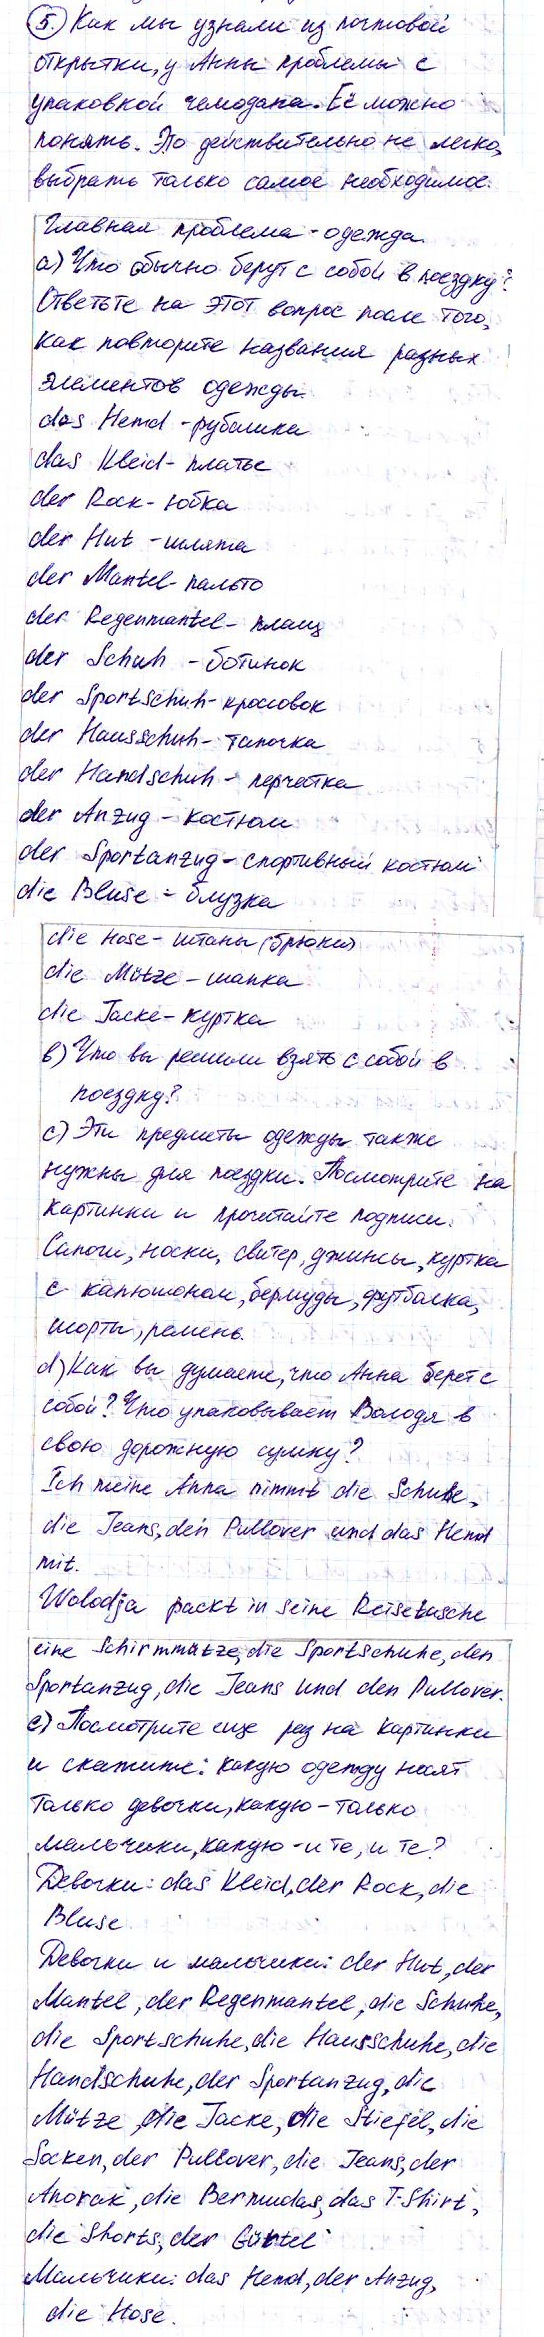 5. Как мы узнали из почтовой
открытки, у Анны проблемы с
упаковкой чемодана. Её можно
понять. Это действительно не легко,
выбрать только самое необходимое.
Главная проблема - одежда.
а) Что обычно берут с собой в поездку?
Ответьте на этот вопрос после того,
как повторите названия разных
элементов одежды.
das Hemd - рубашка
das Kleid - платье
der Rock - юбка
der Hut - шляпа
der Mantel - пальто
der Regenmantel - плащ
der Schuh - ботинок
der Sportschuh - кроссовок
der Hausschuh - тапочка
der Handschuh - перчатка
der Anzug - костюм
der Sportanzug - спортивный костюм
die Bluse - блузка
die Hose - штаны (брюки)
die Mütze - шапка
die Jacke - куртка
b) Что вы решили взять с собой в
поездку?
c) Эти предметы одежды также
нужны для поездки. Посмотрите на
картинки и прочитайте подписи.
Сапоги, носки, свитер, джинсы, куртка
с капюшоном, бермуды, футболка,
шорты, ремень.
d) Как вы думаете, что Анна берет с
собой? Что упаковывает Володя в
свою дорожную сумку?
Ich meine Anna nimmt die Schuhe,
die Jeans, den Pullover und das Hemd
mit.
Wolodja packt in seine Reisetasche
eine Schirmmütze, die Sportschuhe, den
Sportanzug, die Jeans und den Pullover.
e) Посмотрите еще раз на картинки
и скажите: какую одежду носят
только девочки, какую - только
мальчики, какую - и те, и те?
Девочки: das Kleid, der Rock, die
Bluse
Девочки и мальчики: der Hut, der
Mantel, der Regenmantel, die Schuhe,
die Sportschuhe, die Hausschuhe, die
Handschuhe, der Sportanzug, die
Mütze, die Jacke, die Stiefel, die
Socken, der Pullover, die Jeans, der
Anorak, die Bermudas, das T-Shirt,
die Shorts, der Gürtel
Мальчики: das Hemd, der Anzug,
die Hose.